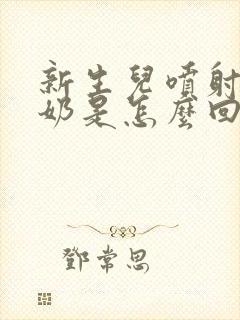 新生兒噴射
奶是怎麼回
鄧常思